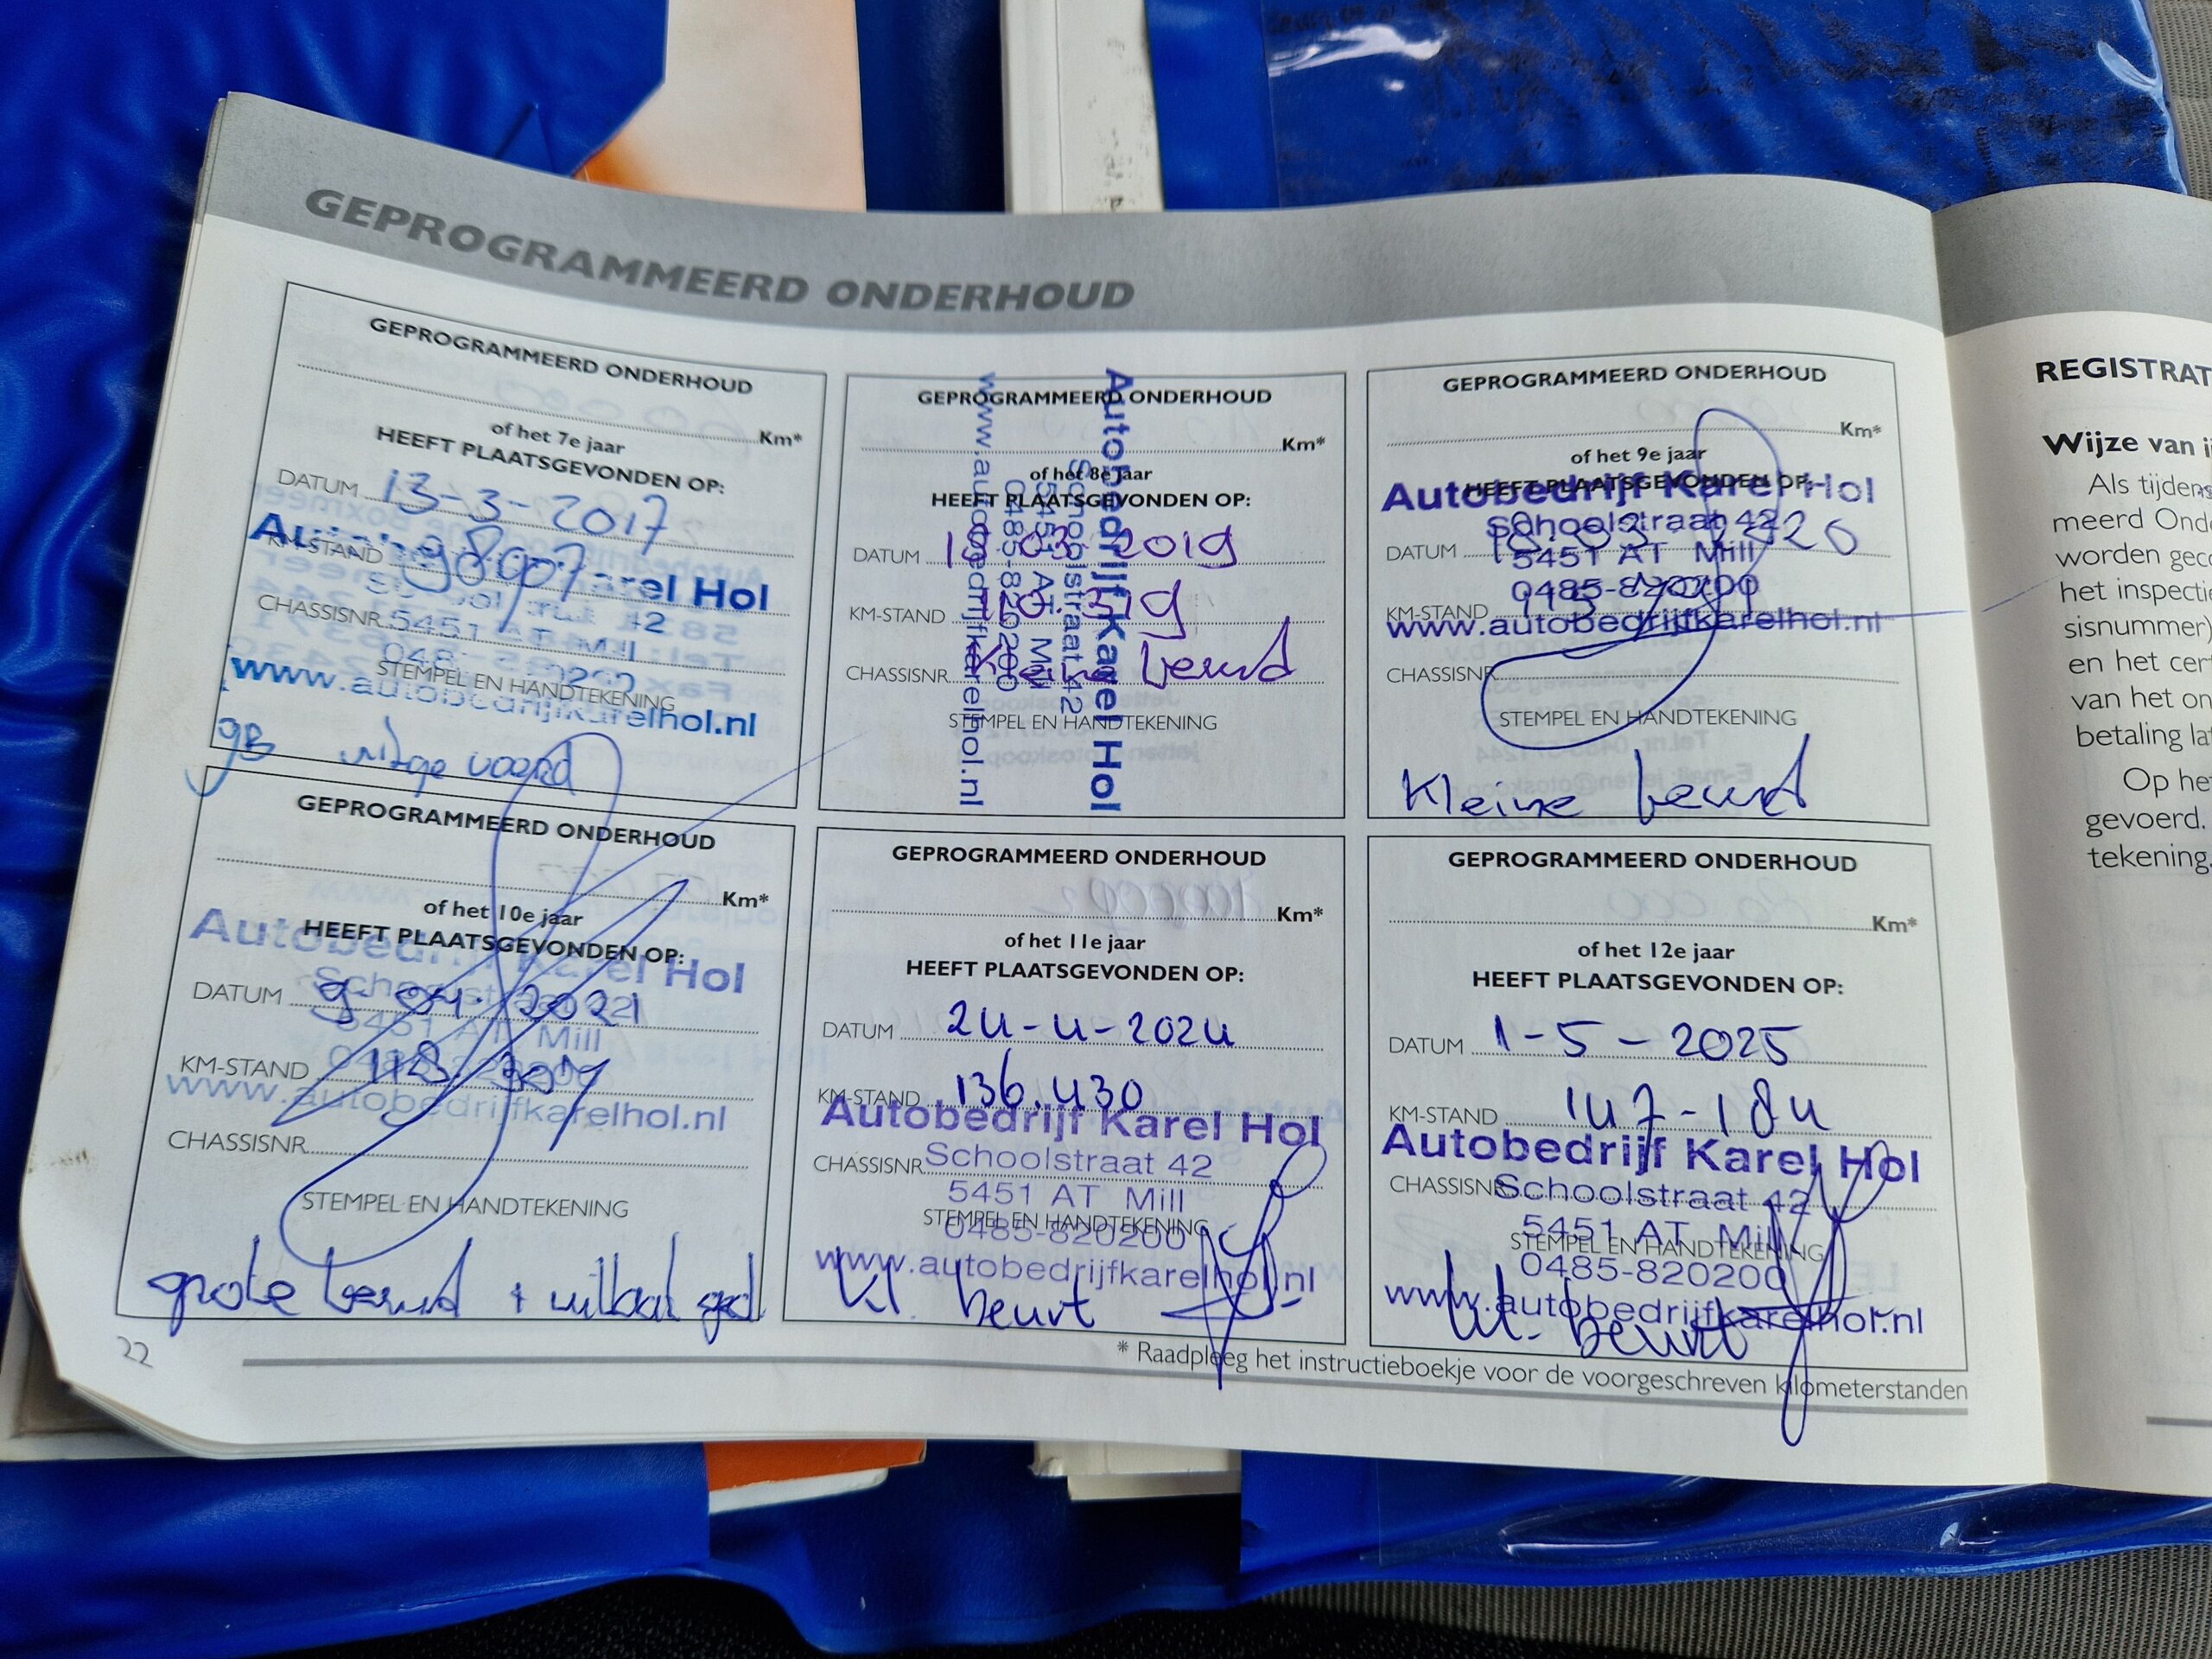 GEPROGRAMMEERD ONDERHOUD
GEPROGRAMMEERD ONDERHOUD
Km*
of het 7e jaar
HEEFT PLAATSGEVONDEN OP:
DATUM 13-3-2017
KM-STAND 98907
Karel Hol
CHASSISNR.
5451 AT Mill
STEMPEL EN HANDTEKENING
www.autobedrijfkarelhol.nl
gB uitgevoerd
GEPROGRAMMEERD ONDERHOUD
Km*
of het 8e jaar
HEEFT PLAATSGEVONDEN OP:
DATUM 2019
KM-STAND
CHASSISNR. Kleine beurt
STEMPEL EN HANDTEKENING
Autobedrijf Karel Hol
Schoolstraat 42
5451 AT Mill
0485-820200
www.autobedrijfkarelhol.nl
GEPROGRAMMEERD ONDERHOUD
Km*
of het 9e jaar
HEEFT PLAATSGEVONDEN OP:
Autobedrijf Karel Hol
Schoolstraat 42
DATUM
5451 AT Mill
0485-820200
KM-STAND
www.autobedrijfkarelhol.nl
CHASSISNR.
STEMPEL EN HANDTEKENING
Kleine beurt
GEPROGRAMMEERD ONDERHOUD
Km*
of het 10e jaar
HEEFT PLAATSGEVONDEN OP:
Autobedrijf Karel Hol
Schoolstraat 42
DATUM 9-04-2021
5451 AT Mill
KM-STAND
0485-820200
www.autobedrijfkarelhol.nl
CHASSISNR.
STEMPEL EN HANDTEKENING
grote beurt +
GEPROGRAMMEERD ONDERHOUD
Km*
of het 11e jaar
HEEFT PLAATSGEVONDEN OP:
DATUM 24-4-2024
KM-STAND 136.430
Autobedrijf Karel Hol
CHASSISNR.
Schoolstraat 42
5451 AT Mill
STEMPEL EN HANDTEKENING
0485-820200
www.autobedrijfkarelhol.nl
kl. beurt
GEPROGRAMMEERD ONDERHOUD
Km*
of het 12e jaar
HEEFT PLAATSGEVONDEN OP:
DATUM 1-5-2025
KM-STAND 147-184
Autobedrijf Karel Hol
CHASSISNR.
Schoolstraat 42
5451 AT Mill
STEMPEL EN HANDTEKENING
0485-820200
www.autobedrijfkarelhol.nl
kl. beurt
* Raadpleeg het instructieboekje voor de voorgeschreven kilometerstanden
22
REGISTRAT
Wijze van
Als tijdens
meerd Onde
worden geco
het inspectie
sisnummer)
en het cert
van het on
betaling lat
Op het
gevoerd.
tekening,